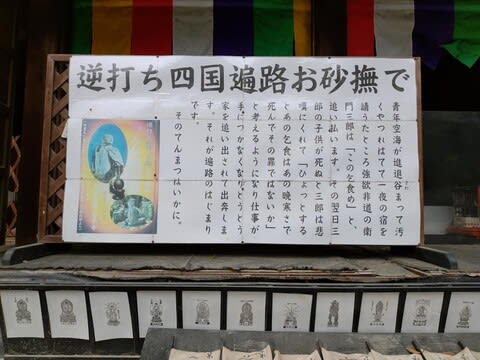 逆打ち四国遍路お砂撫で
青年空海が進退谷まって汚
くやつれはてて一夜の宿を
請うたところ強欲非道の衛
門三郎は「この乞食め」と、
追い払います。その翌日三
郎の子供が死ぬと三郎は悲
嘆にくれて「ひょっとする
とあの乞食はあの晩寒さで
死んでその罪ではないか」
と考えるようになり仕事が
手につかなくなりとうとう
家を追い出されて出奔しま
す。それが遍路のはじまり
です。
そのてんまつはいかに。